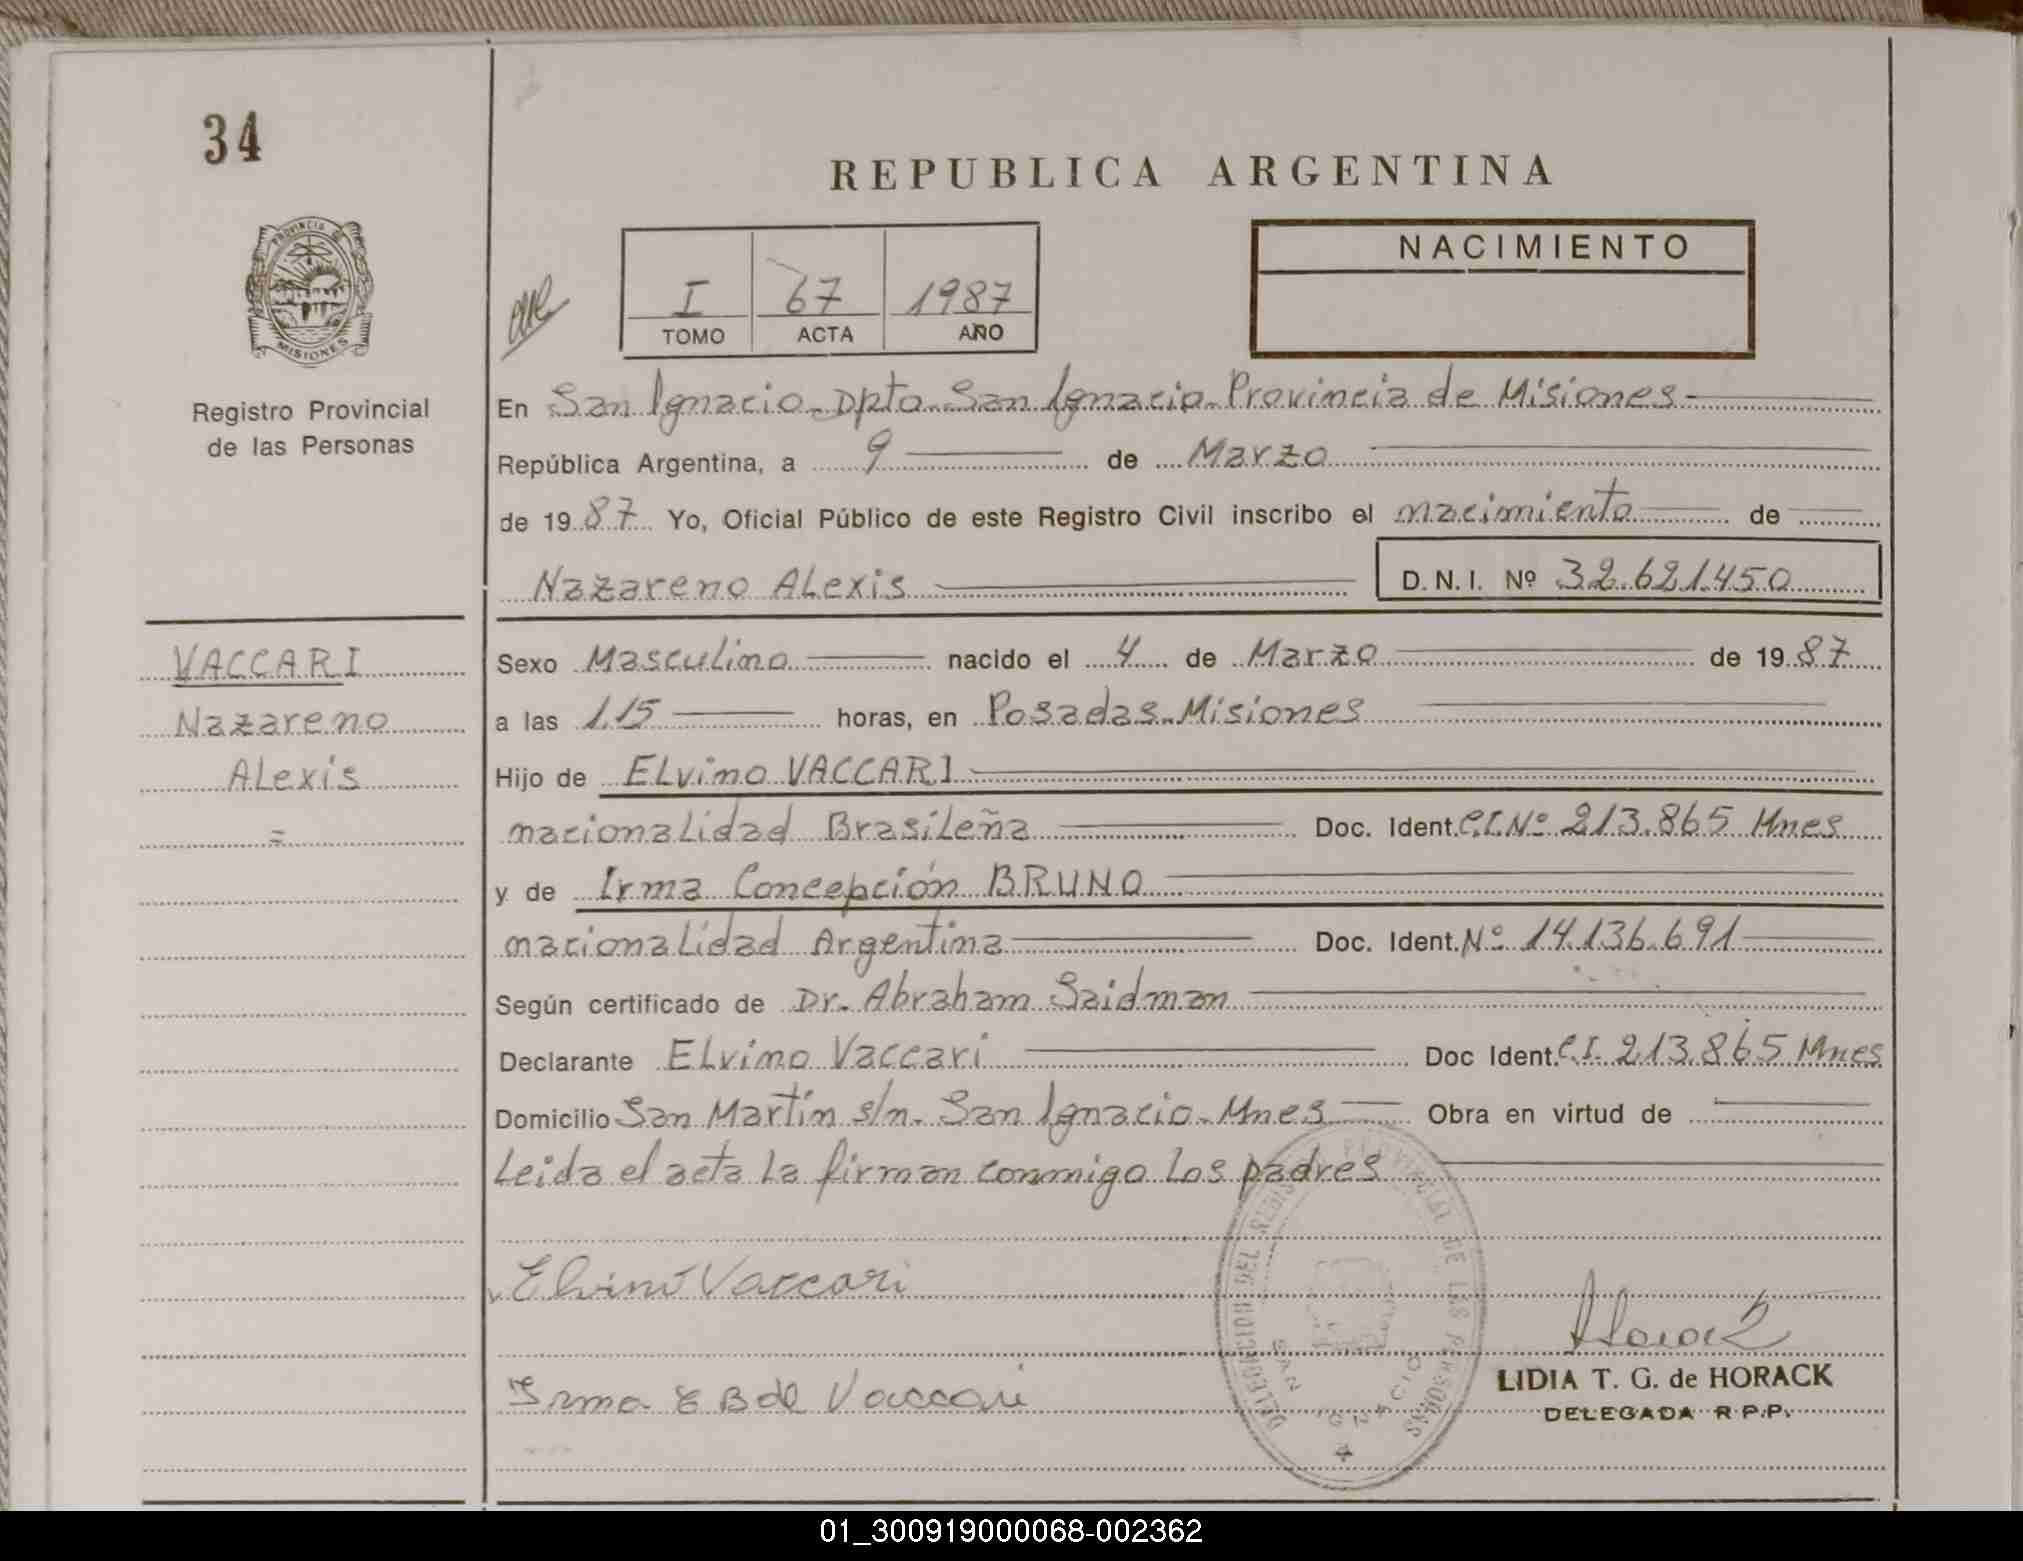 34
REPUBLICA ARGENTINA
PROVINCIA DE
MISIONES
Registro Provincial
de las Personas
I 67 1987
TOMO ACTA AÑO
NACIMIENTO
En San Ignacio-Dpto. San Ignacio-Provincia de Misiones-
República Argentina, a 9 de Marzo
de 1987 Yo, Oficial Público de este Registro Civil inscribo el nacimiento de
Nazareno Alexis D.N.I. Nº 32.621.450
VACCARI
Nazareno
Alexis
=
Sexo Masculino nacido el 4 de Marzo de 1987
a las 1.15 horas, en Posadas-Misiones
Hijo de Elvino VACCARI
nacionalidad Brasileña Doc. Ident. C.I.Nº 213.865 Mnes
y de Irma Concepción BRUNO
nacionalidad Argentina Doc. Ident. Nº 14.136.691
Según certificado de Dr. Abraham Saidman
Declarante Elvino Vaccari Doc Ident. C.I. 213.865 Mnes
Domicilio San Martín s/n. San Ignacio-Mnes Obra en virtud de
Leida el acta la firman conmigo los padres
Elvino Vaccari
Irma C B de Vaccari
DELEGACION DEL REGISTRO PROVINCIAL DE LAS PERSONAS
SAN IGNACIO
Horack
LIDIA T. G. de HORACK
DELEGADA R.P.P.
01_300919000068-002362